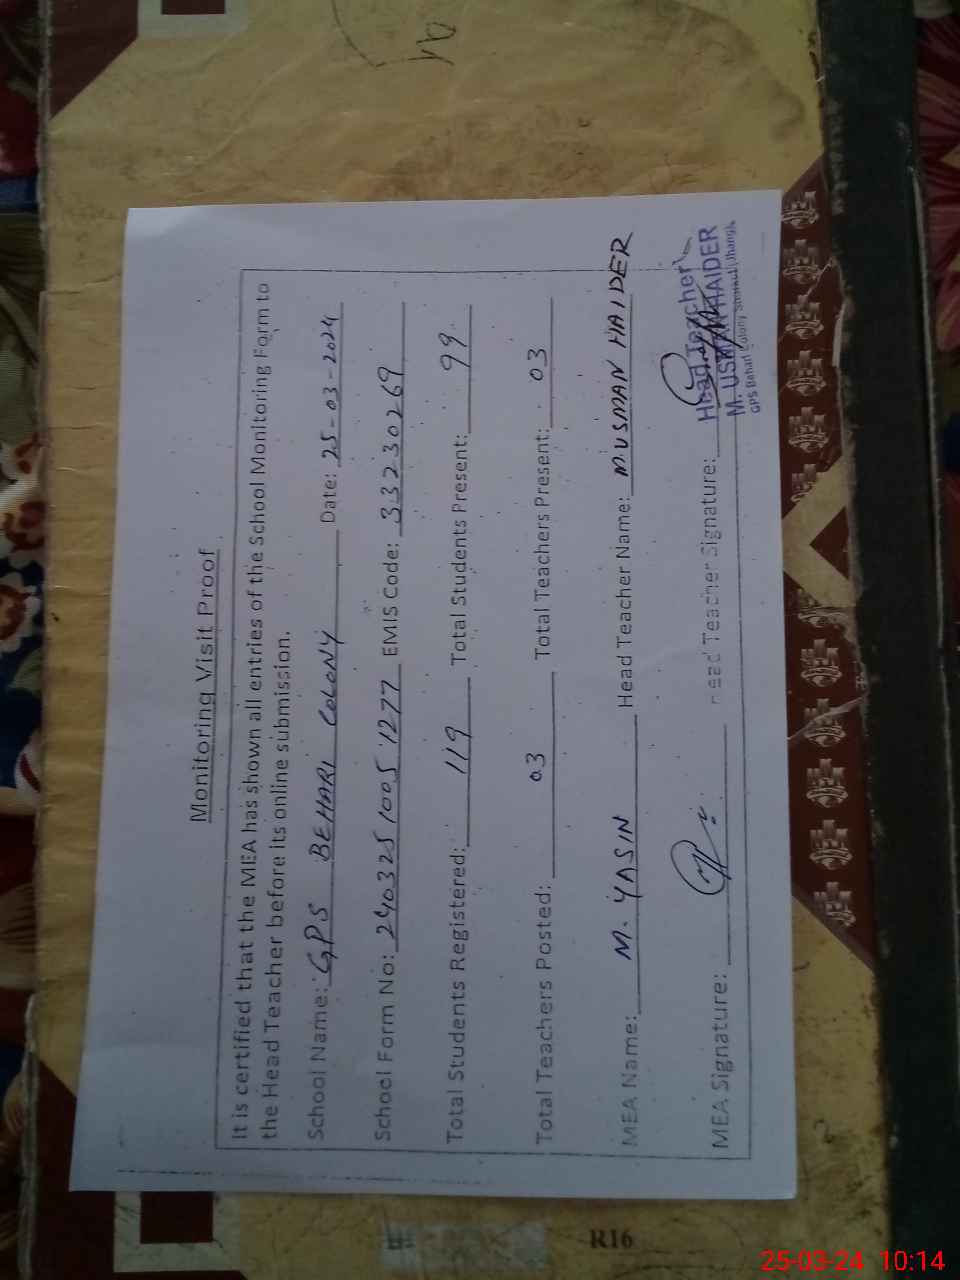 Monitoring Visit Proof
It is certified that the MEA has shown all entries of the School Monitoring Form to
the Head Teacher before its online submission.
School Name: GPS BEHARI COLONY Date: 25-03-2024
School Form No: 24032510051277 EMIS Code: 33230269
Total Students Registered: 119 Total Students Present: 99
Total Teachers Posted: 03 Total Teachers Present: 03
MEA Name: M. YASIN Head Teacher Name: M. USMAN HAIDER
MEA Signature: Head Teacher Signature:
Head Teacher
M. USMAN HAIDER
GPS Behari Colony
R16
25-03-24 10:14